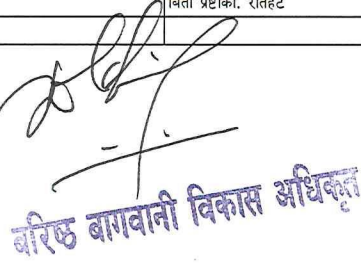 प्रष्टाका. रौतहट
बरिष्ठ बागवानी विकास अधिकृत